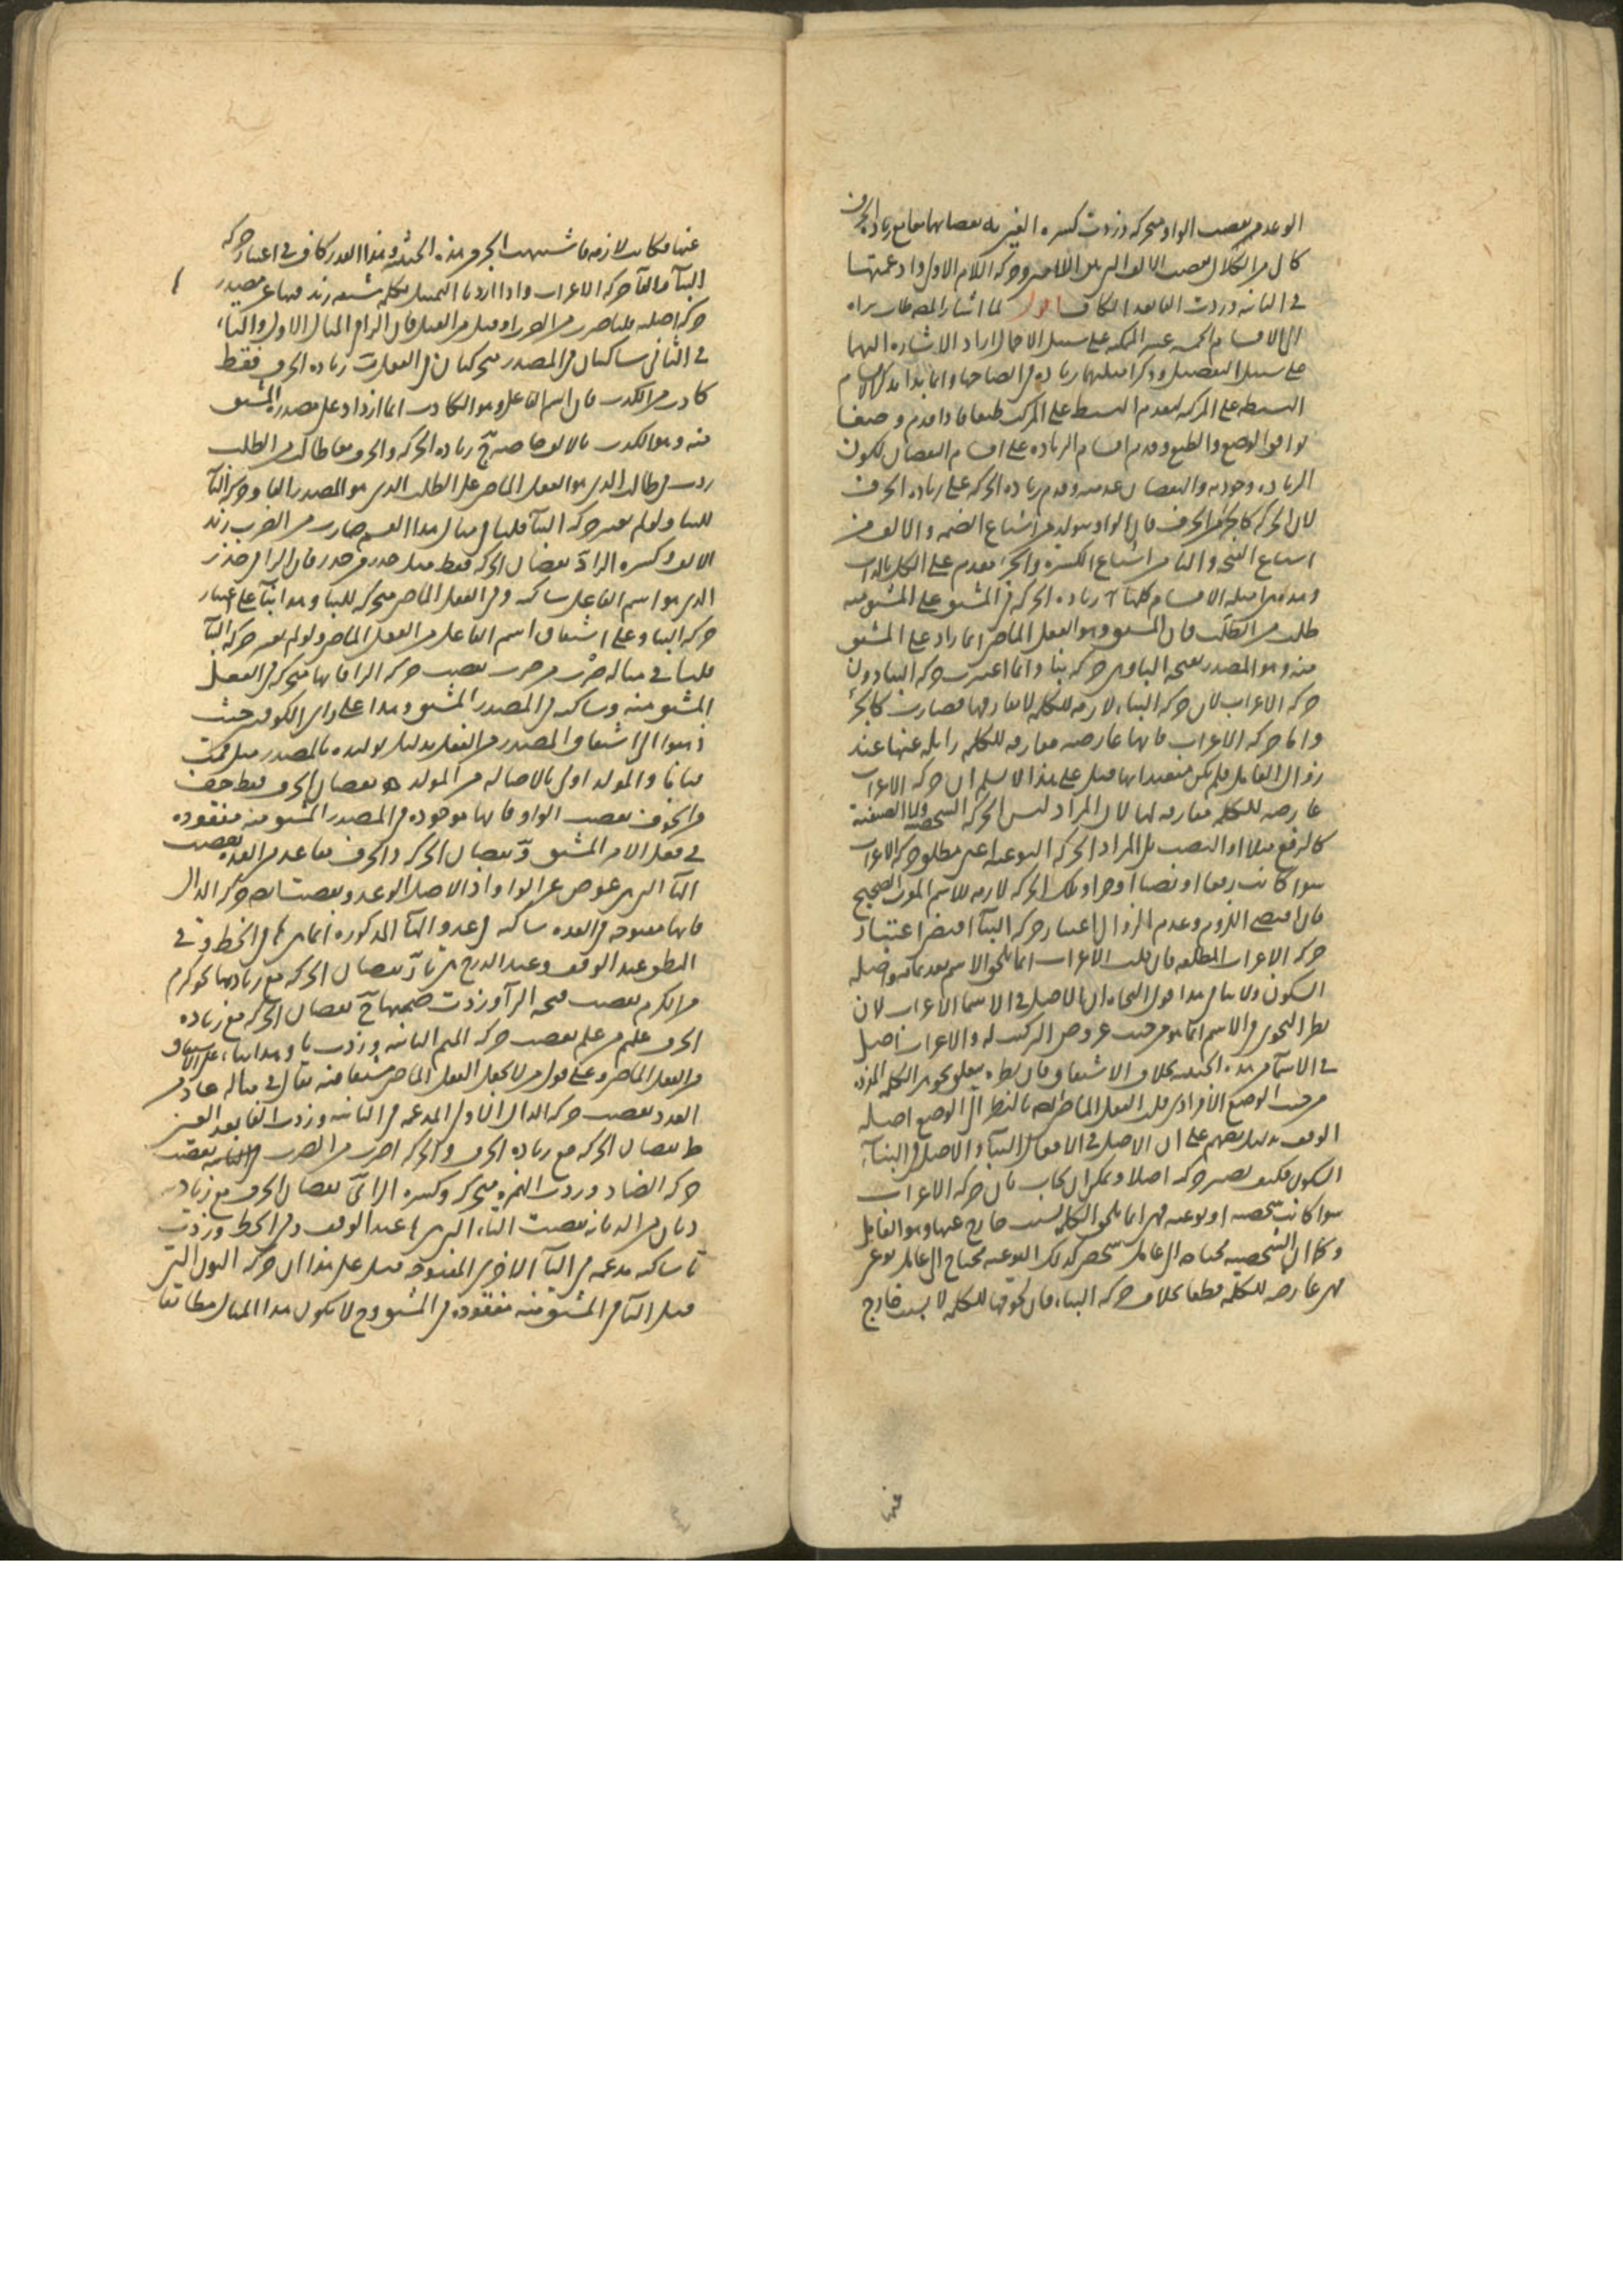 الوعد من نقصت الواو متحركة وزدت كسرة العين يه نقصانهما مع زيادة الحرف
كال من الكلال نقصت الالف التي بين اللامين وحركة اللام الاولى وادغمتها
في الثانية وزدت الفا بعد الكاف اقول لما اشار المصنف
الى الاقسام الخمسة عشر الممكنة على سبيل الاجمال اراد الاشارة اليها
على سبيل التفصيل وذكر امثلتها زيادة في ايضاحها وانما بدا بذكر الاقسام
البسيطة على المركبة لتقدم البسيط على المركب طبعا فاذا قدم وضعا
توافق الوضع والطبع وقدم اقسام الزيادة على اقسام النقصان لكون
الزيادة وجودية والنقصان عدمية وقدم زيادة الحركة على زيادة الحرف
لان الحركة كالجزء من الحرف فان الواو متولد من اشباع الضمة والالف من
اشباع الفتحة واليا من اشباع الكسرة والجزء مقدم على الكل بالذات
وهذه امثلة الاقسام كلها آ زيادة الحركة في المشتق على المشتق منه
طلب من الطلب فان المشتق وهو الفعل الماضي انما زاد على المشتق
منه وهو المصدر بفتحة البا وهي حركة بنا وانما اعتبرت حركة البنا دون
حركة الاعراب لان حركة البناء لازمة للكلمة لا تفارقها فصارت كالجزء
واما حركة الاعراب فانها عارضة مفارقة للكلمة زايلة عنها عند
زوال العامل فلم يكن معتدا بها قيل على هذا لا نسلم ان حركة الاعراب
عارضة للكلمة مفارقة لها لان المراد ليس الحركة الشخصية ولا الصنفية
كالرفع مثلا او النصب بل المراد الحركة النوعية اعني مطلق حركة الاعراب
سوا كانت رفعا او نصبا او جرا وتلك الحركة لازمة للاسم المعرب الصحيح
فان اقتضى اللزوم وعدم الزوال اعتبار حركة البنا اقتضى اعتبار
حركة الاعراب المطلقة فان قلت الاعراب انما يلحق الاسم بعد اصله
السكون ولا ينافي هذا قول النحاة ان الاصل في الاسما الاعراب لان
نظر النحوي في الاسم انما هو من حيث عروض التركيب له والاعراب اصل
في الاسما من هذه الحيثية بخلاف الاشتقاق فان نظره يتعلق بجوهر الكلمة المفردة
من حيث الوضع الافرادي قلت الفعل الماضي ايضا بالنظر الى الوضع اصله
الوقف بدليل نصهم على ان الاصل في الافعال البنا والاصل في البناء
السكون فكيف تصير حركة اصلا ويمكن ان يجاب بان حركة الاعراب
سوا كانت شخصية او نوعية فهي انما يلحق الكلمة لسبب خارج عنها وهو العامل
وكما ان الشخصية محتاجة الى عامل شخصي كذلك النوعية محتاج الى عامل نوعي
فهي عارضة للكلمة قطعا بخلاف حركة البناء فان لحوقها للكلمة لا بسبب خارج
عنها
عنها فكانت لازمة فاشبهت الحرف من هذه الحيثية وهذا القدر كاف في اعتبار حركة
البنا والغا حركة الاعراب واذا اردنا التمثيل بكلمة
في الثاني ساكنان في المصدر متحركتان في الفعل ب زيادة الحرف فقط
كاذب من الكذب فان اسم الفاعل وهو الكاذب انما ازداد على مصدر المشتق
منه وهو الكذب بالالف خاصة ج زيادة الحركة والحرف معا طالب من الطلب
زدت في طالب الذي هو الفعل الماضي على الطلب الذي هو المصدر الفا وحركة البا
للبنا ولو لم نعتبر حركة البنا قلنا في مثال هذا القسم ضارب من الضرب زدت
الالف وكسرة الرا د نقصان الحركة فقط مثل حذر من حذر فان الرا في حذر
الذي هو اسم الفاعل ساكنة وفي الفعل الماضي متحركة للبنا وهذا بنآ على اعتبار
حركة البنا وعلى اشتقاق اسم الفاعل من الفعل الماضي ولو لم نعتبر حركة البنا
قلنا في مثاله ضرب من ضرب نقصت حركة الرا فانها متحركة في الفعل
المشتق منه وساكنة في المصدر المشتق وهذا على راى الكوفيين حيث
ذهبوا الى اشتقاق المصدر من الفعل بدليل توكيده بالمصدر مثل قمت
قياما والمولد اولى بالاصالة من المولد ه نقصان الحرف فقط خف
من الخوف نقصت الواو فانها موجودة في المصدر المشتق منه مفقودة
في فعل الامر المشتق و نقصان الحركة والحرف معا عد من العدة نقصت
التا التي هي عوض عن الواو اذ الاصل الوعد ونقصت ايضا حركة الدال
فانها مفتوحة في العدة ساكنة في عد والتا المذكورة انما هي ها في الخط وفي
النطق عند الوقف وعند الدرج هي تا ز نقصان الحركة مع زيادتها نحو كرم
من الكرم نقصت فتحة الرا وزدت ضمتها ح نقصان الحركة مع زيادة
الحرف عليم من علم نقصت حركة الميم الثانية وزدت يا وهذا بنا على الاشتقاق
من الفعل الماضي وعلى قول من لا يجعل الفعل الماضي مشتقا منه يقال في مثاله عاد من
العدد نقصت حركة الدال الاولى المدغمة في الثانية وزدت الفا بعد العين
ط نقصان الحركة مع زيادة الحرف والحركة اضرب من الضرب نقصت
حركة الضاد وزدت الهمزة متحركة وكسرة الرا ى نقصان الحرف مع زيادته
ديان من الديانة نقصت التاء التي هي ها عند الوقف وفي الخط وزدت
يا ساكنة مدغمة في اليا الاخرى المفتوحة قيل على هذا ان حركة النون التي
قبل التا في المشتق منه مفقودة في المشتق وح لا يكون هذا المثال مطابقا